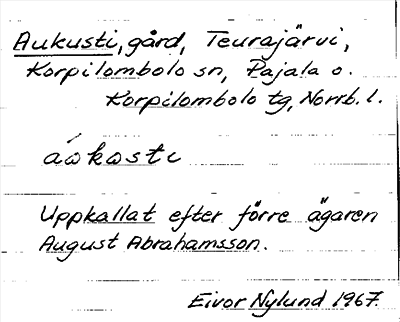 Aukusti, gård, Teurajärvi,
Korpilombolo sn, Pajala o.
Korpilombolo tg, Norrb. l.
áωkωstι
Uppkallat efter förre ägaren
August Abrahamsson.
Eivor Nylund 1967.